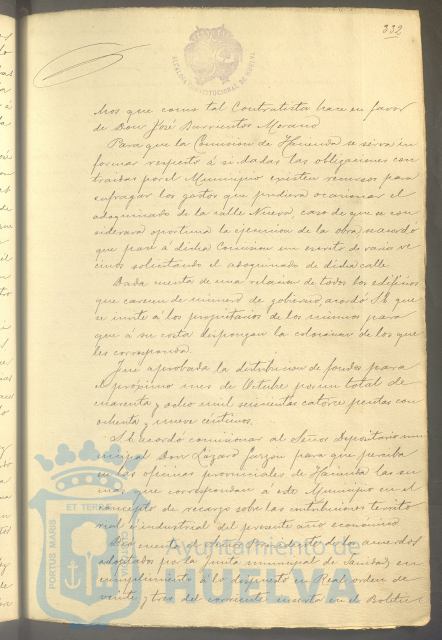 332
ALCALDIA CONSTITUCIONAL DE HUELVA
chos que como tal Contratista hace en favor
de Don José Barrientos Morano
Para que la Comision de Hacienda se sirva in
formar respecto á si dadas las obligaciones con
traidas por el Municipio existen recursos para
sufragar los gastos que pudiera ocasionar el
adoquinado de la calle Nueva, caso de que se con
siderara oportuna la ejecucion de la obra, se acordó
que pase á dicha Comision un escrito de varios ve
cinos solicitando el adoquinado de dicha calle.
Dada cuenta de una relacion de todos los edificios
que carecen de numero de gobierno, acordó S.E. que
se invite á los propietarios de los mismos para
que á su costa dispongan la colocacion de los que
les corresponda.
Fué aprobada la distribucion de fondos para
el próximo mes de Octubre por un total de
cuarenta y ocho mil seiscientas catorce pesetas con
ochenta y nueve centimos.
S.E. acordó comisionar al Señor Depositario mu
nicipal Don Lázaro Garzon para que perciba
en las oficinas provinciales de Hacienda las su
mas que correspondan á este Municipio en el
concepto de recargo sobre las contribuciones territo
rial é industrial del presente año económico
Dió cuenta el Señor Presidente de los acuerdos
adoptados por la Junta municipal de Sanidad, en
cumplimiento á lo dispuesto en Real orden de
veinte y tres del corriente inserta en el Boletin
PORTUS MARIS
ET TERRAE
CUSTODIA
Ayuntamiento de
HUELVA